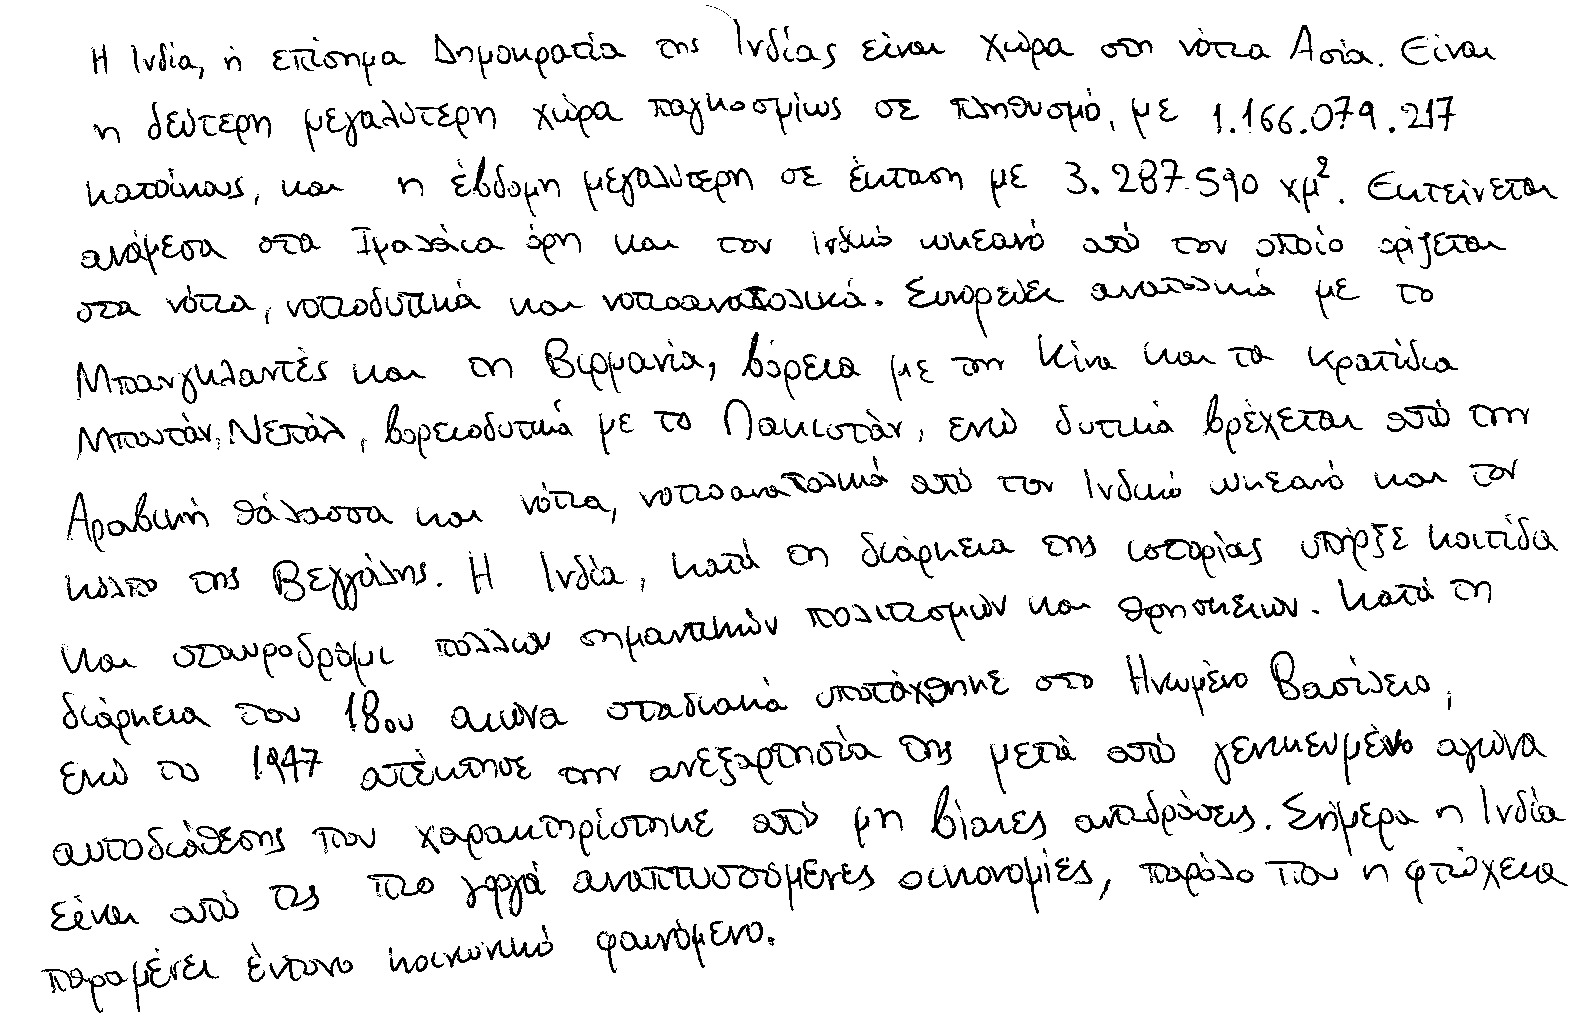 Η Ινδία, ή επίσημα Δημοκρατία της Ινδίας είναι χώρα στη νότια Ασία. Είναι
η δεύτερη μεγαλύτερη χώρα παγκοσμίως σε πληθυσμό, με 1.166.079.217
κατοίκους, και η έβδομη μεγαλύτερη σε έκταση με 3.287.590 χμ². Εκτείνεται
ανάμεσα στα Ιμαλάια όρη και τον ινδικό ωκεανό από τον οποίο ορίζεται
στα νότια, νοτιοδυτικά και νοτιοανατολικά. Συνορεύει ανατολικά με το
Μπανγκλαντές και τη Βιρμανία, βόρεια με την Κίνα και τα κρατίδια
Μπουτάν, Νεπάλ, βορειοδυτικά με το Πακιστάν, ενώ δυτικά βρέχεται από την
Αραβική θάλασσα και νότια, νοτιοανατολικά από τον Ινδικό ωκεανό και τον
κόλπο της Βεγγάλης. Η Ινδία, κατά τη διάρκεια της ιστορίας υπήρξε κοιτίδα
και σταυροδρόμι πολλών σημαντικών πολιτισμών και θρησκειών. Κατά τη
διάρκεια του 18ου αιώνα σταδιακά υποτάχθηκε στο Ηνωμένο Βασίλειο,
ενώ το 1947 απέκτησε την ανεξαρτησία της μετά από γενικευμένο αγώνα
αυτοδιάθεσης που χαρακτηρίστηκε από μη βίαιες αντιδράσεις. Σήμερα η Ινδία
είναι από τις πιο γοργά αναπτυσσόμενες οικονομίες, παρόλο που η φτώχεια
παραμένει έντονο κοινωνικό φαινόμενο.